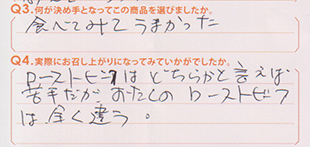 Q3.何が決め手となってこの商品を選びましたか。
食べてみてうまかった
Q4.実際にお召し上がりになってみていかがでしたか。
ローストビーフは どちらかと言えば
苦手だが おたくの ローストビーフ
は全く違う。